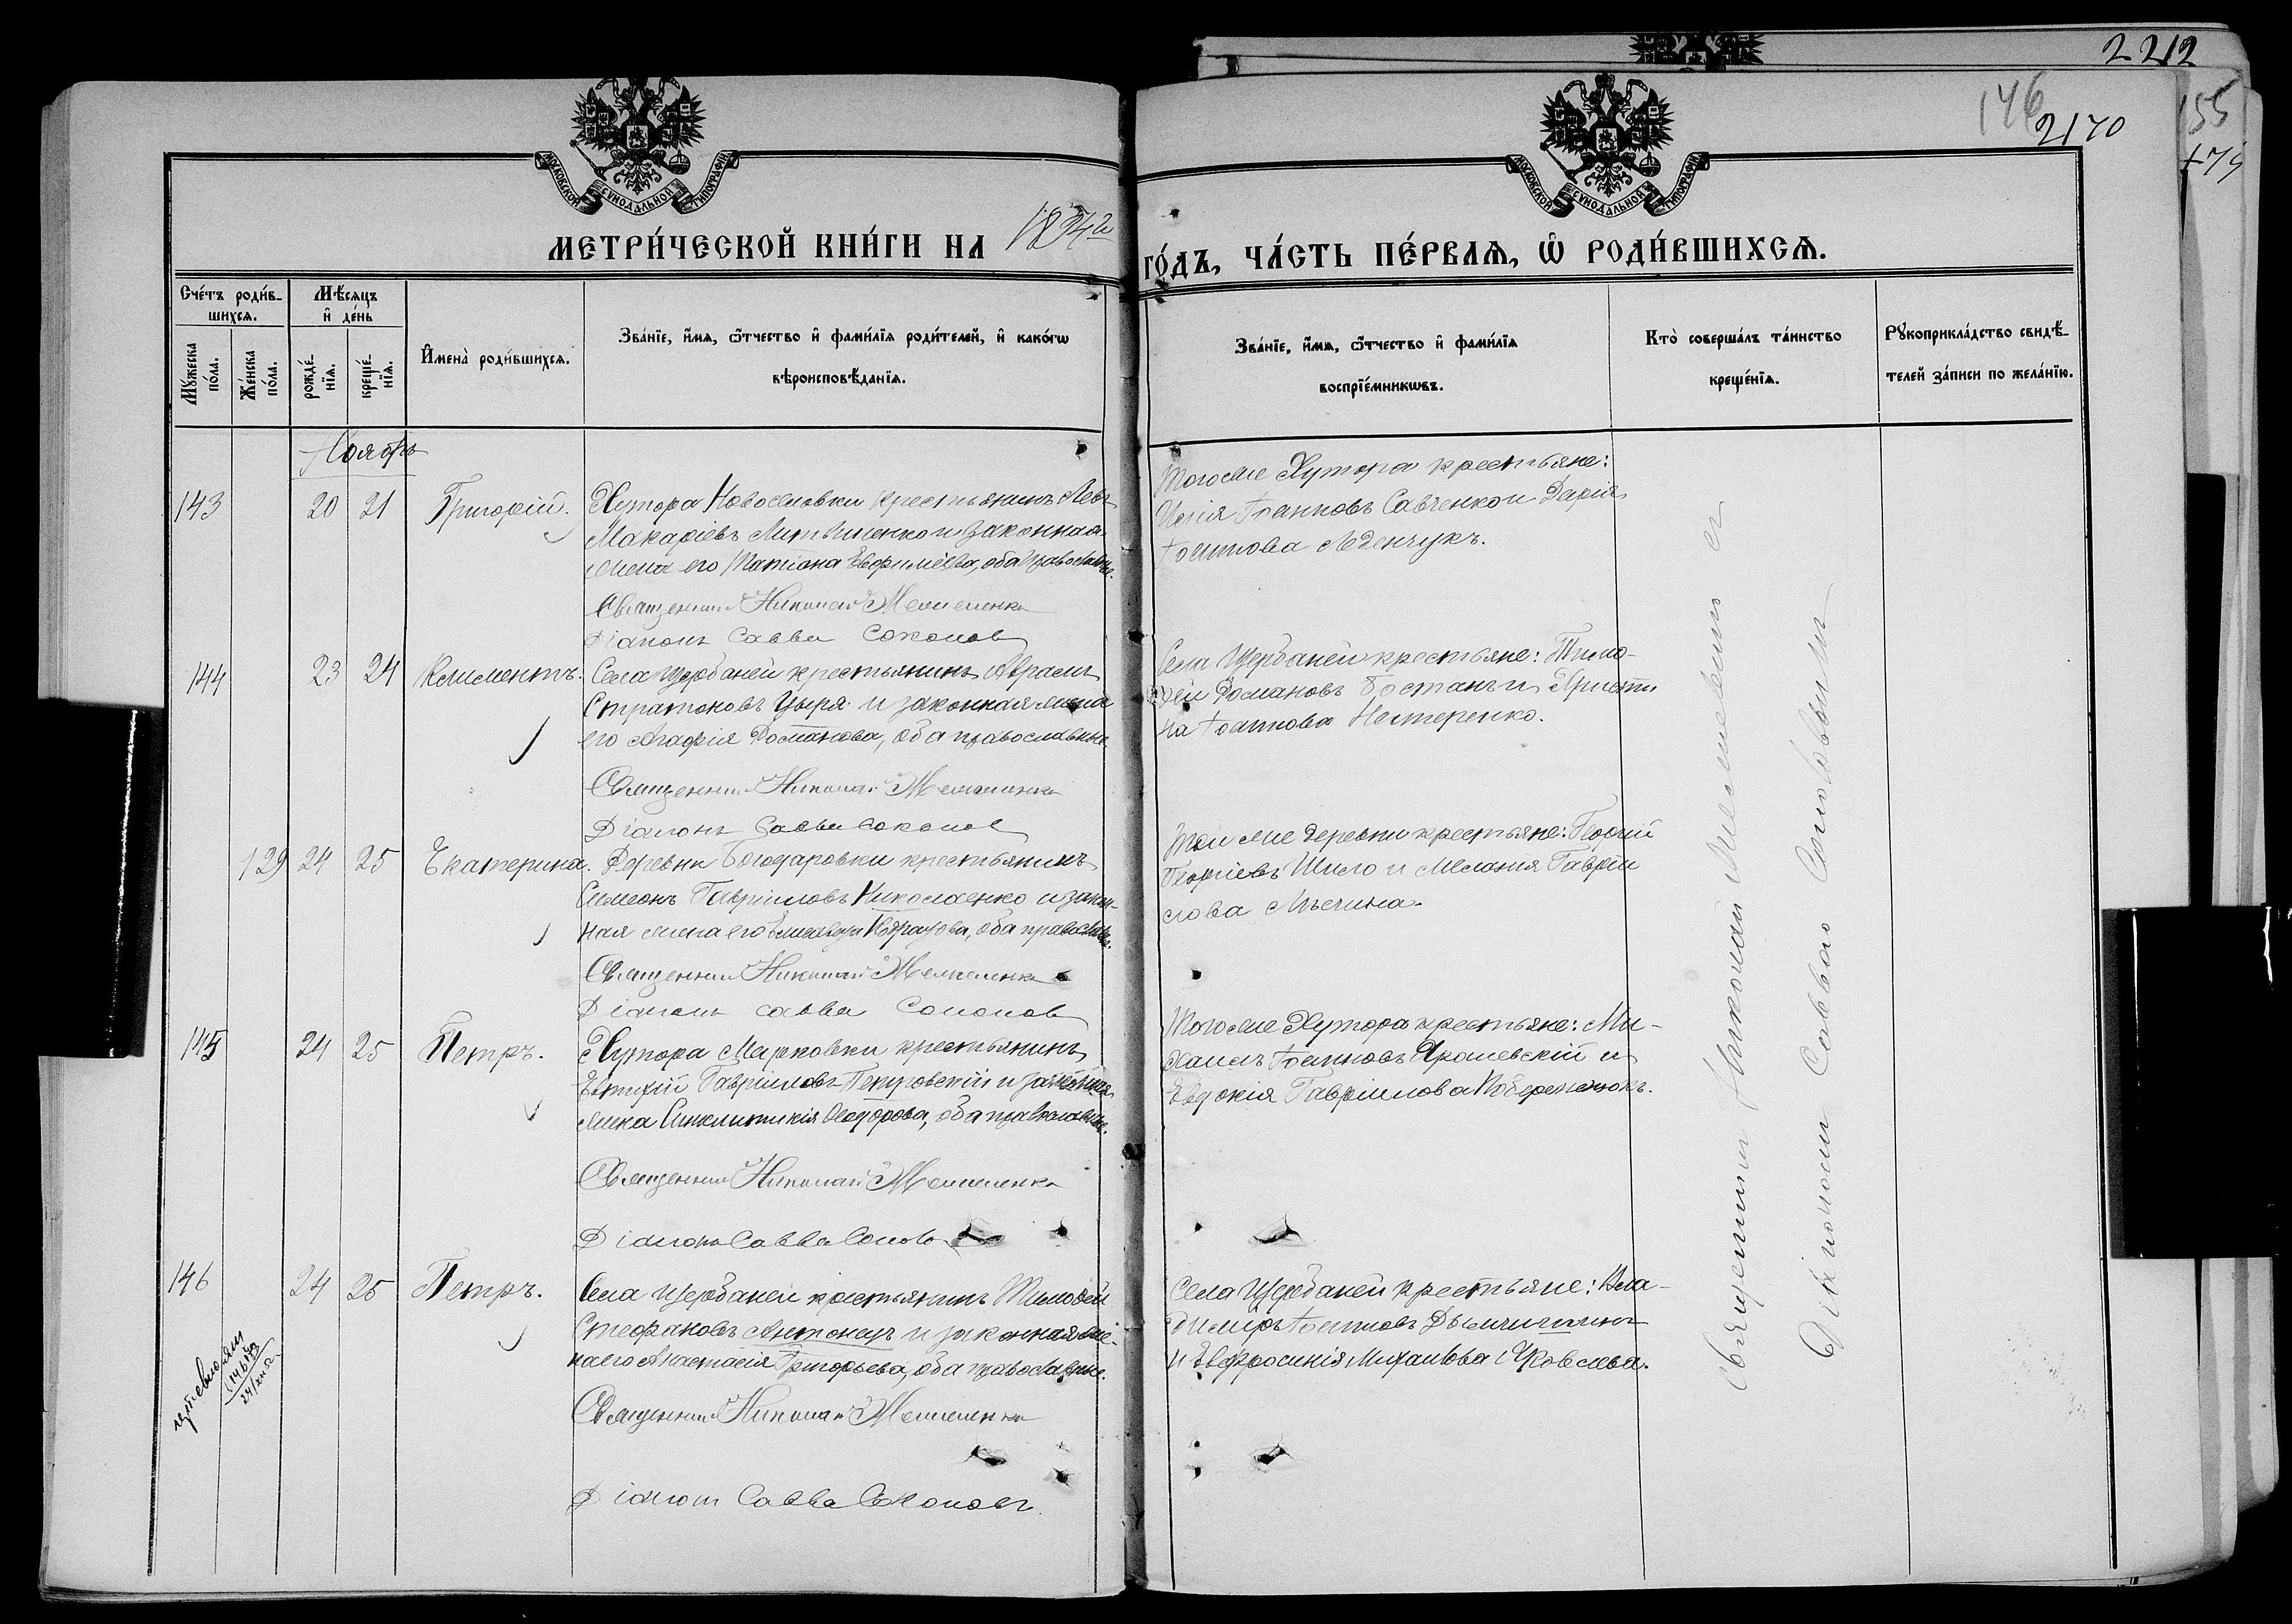 2212
146
2170
155
МОСКОВСКОЙ СУНОДАЛЬНОЙ ТИПОГРАФІИ
МОСКОВСКОЙ СУНОДАЛЬНОЙ ТИПОГРАФІИ
МЕТРИ́ЧЕСКОЙ КНИ́ГИ НА
ГО́ДЪ, ЧА́СТЬ ПЕ́РВАѦ, Ѡ҆ РОДИ́ВШИХСѦ.
Сче́тъ роди́в-
шихсѧ.
Мѣ́сѧцъ
и҆ де́нь
Мꙋ́жеска по́ла.
Же́нска по́ла.
рожде́-
нїѧ.
креще́-
нїѧ.
И҆мена̀ роди́вшихсѧ.
Зва́нїе, и҆́мѧ, ѻ҆́тчество и҆ фами́лїѧ роди́телей, и҆ како́гѡ
вѣроисповѣ́данїѧ.
Зва́нїе, и҆́мѧ, ѻ҆́тчество и҆ фами́лїѧ
воспрїе́мникѡвъ.
Кто̀ соверша́лъ та́инство
креще́нїѧ.
Рꙋкоприкла́дство свидѣ́-
телей за́писи по жела́нїю.
Ноябрь
143 20 21 Григорій. Хутора Новоселовки крестьянинъ Левъ
Макаріевъ Литвиненко и законная
жена его Татіана Евфиміева, оба православные.
Священникъ Николай
Діаконъ Савва Соколовъ
Тогоже Хутора крестьяне:
Илія Іоанновъ Савченко и Дарія
Іоаннова
144 23 24 Климентъ. Села Щербаней крестьянинъ Авраамъ
Стратоновъ Цыря и законная жена
его Агафія Романова, оба православные
Священникъ Николай
Діаконъ Савва Соколовъ
Села Щербаней крестьяне: Тимо-
ѳей Романовъ Бостанъ и Христи
на Іоаннова Нестеренко.
129 24 25 Екатерина. Деревни Богодаровки крестьянинъ
Симеонъ Гавріиловъ Николаенко и закон-
ная жена его оба православные.
Священникъ Николай
Діаконъ Савва Соколовъ
Той же деревни крестьяне: Георгій
Георгіевъ Шило и Меланія Гаврі
лова
145 24 25 Петръ. Хутора Марковки крестьянинъ
Евтихій Гавріиловъ Петровскій и законная
жена Синклитикія Ѳеодорова, оба православные.
Священникъ Николай
Діаконъ Савва Соколовъ
Тогоже Хутора крестьяне: Ми-
хаилъ Іоанновъ Ярошевскій и
Евдокія Гавріилова Побережнюкъ.
146 24 25 Петръ. Села Щербаней крестьянинъ Тимоѳей
Стефановъ Антонецъ и законная же-
на его Анастасія Григорьева, оба православные.
Священникъ Николай
Діаконъ Савва Соколовъ.
Села Щербаней крестьяне: Вла-
диміръ Іоанновъ
и Евфросинія Михаилова Яковлева.
Священникъ Николай
Діакономъ Саввою Соколовымъ